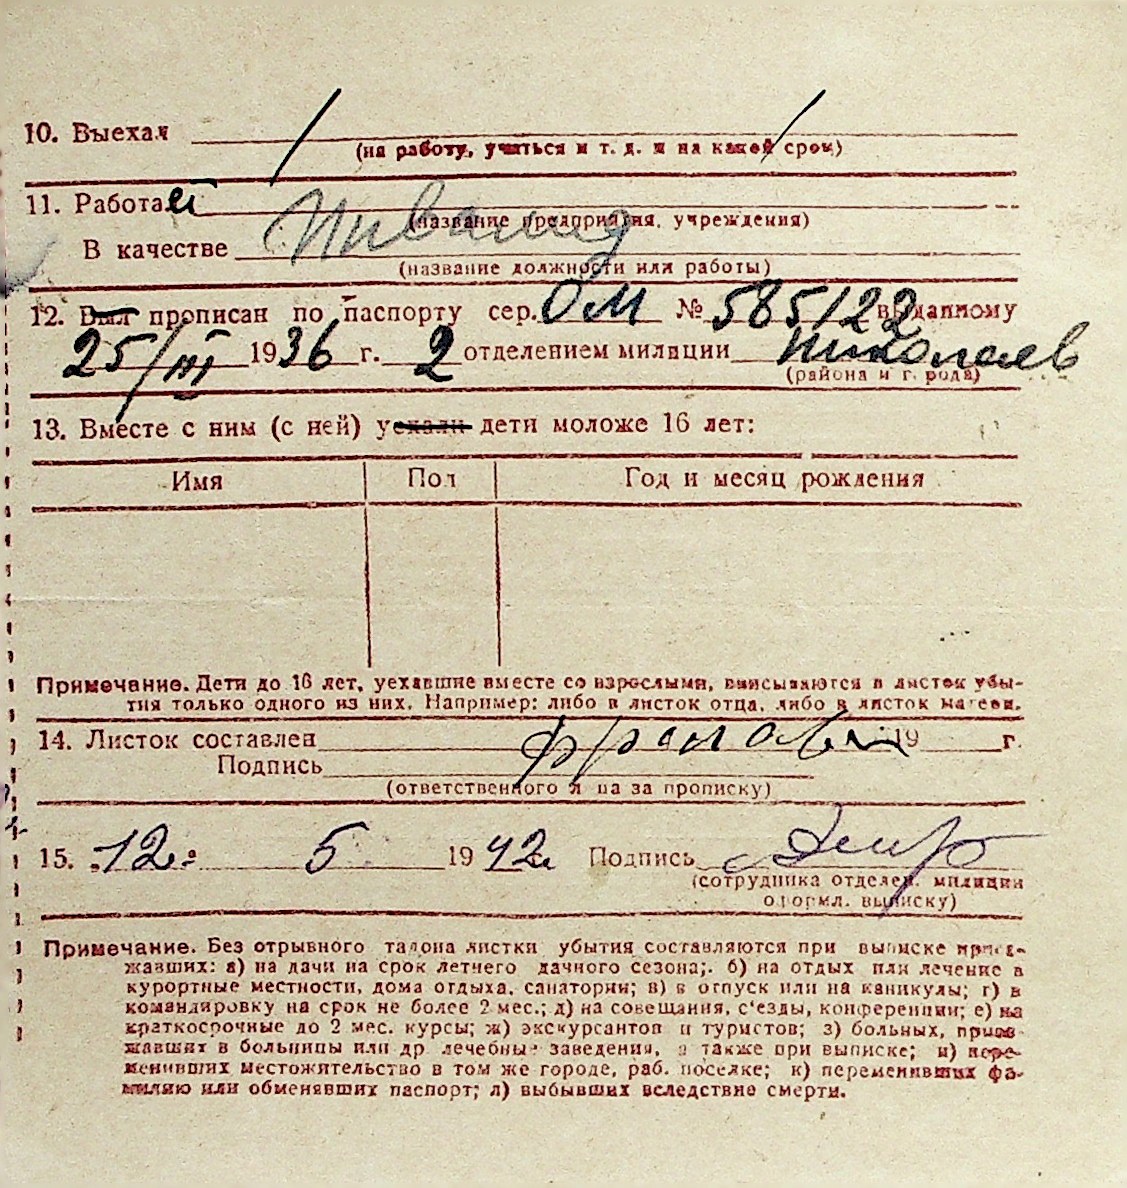 10. Выехал
(на работу, учиться и т. д. и на какой срок)
11. Работает
(название предприятия, учреждения)
В качестве Инвалид
(название должности или работы)
12. Был прописан по паспорту сер. ОМ № 585122 выданному
25/III 1936 г. 2 отделением милиции Николаев
(района и города)
13. Вместе с ним (с ней) уехали дети моложе 16 лет:
Имя Пол Год и месяц рождения
Примечание. Дети до 16 лет, уехавшие вместе со взрослыми, вписываются в листок убы-
тия только одного из них. Например: либо в листок отца, либо в листок матери.
14. Листок составлен 19 г.
Подпись
(ответственного лица за прописку)
15. 12 5 1942 Подпись
(сотрудника отделен. милиции
оформл. выписку)
Примечание. Без отрывного талона листки убытия составляются при выписке приез-
жавших: а) на дачи на срок летнего дачного сезона;. б) на отдых или лечение в
курортные местности, дома отдыха, санатории; в) в отпуск или на каникулы; г) в
командировку на срок не более 2 мес.; д) на совещания, с'езды, конференции; е) на
краткосрочные до 2 мес. курсы; ж) экскурсантов и туристов; з) больных, приез-
жавших в больницы или др лечебные заведения, а также при выписке; и) пере-
менивших местожительство в том же городе, раб. поселке; к) переменивших фа-
милию или обменявших паспорт; л) выбывших вследствие смерти.